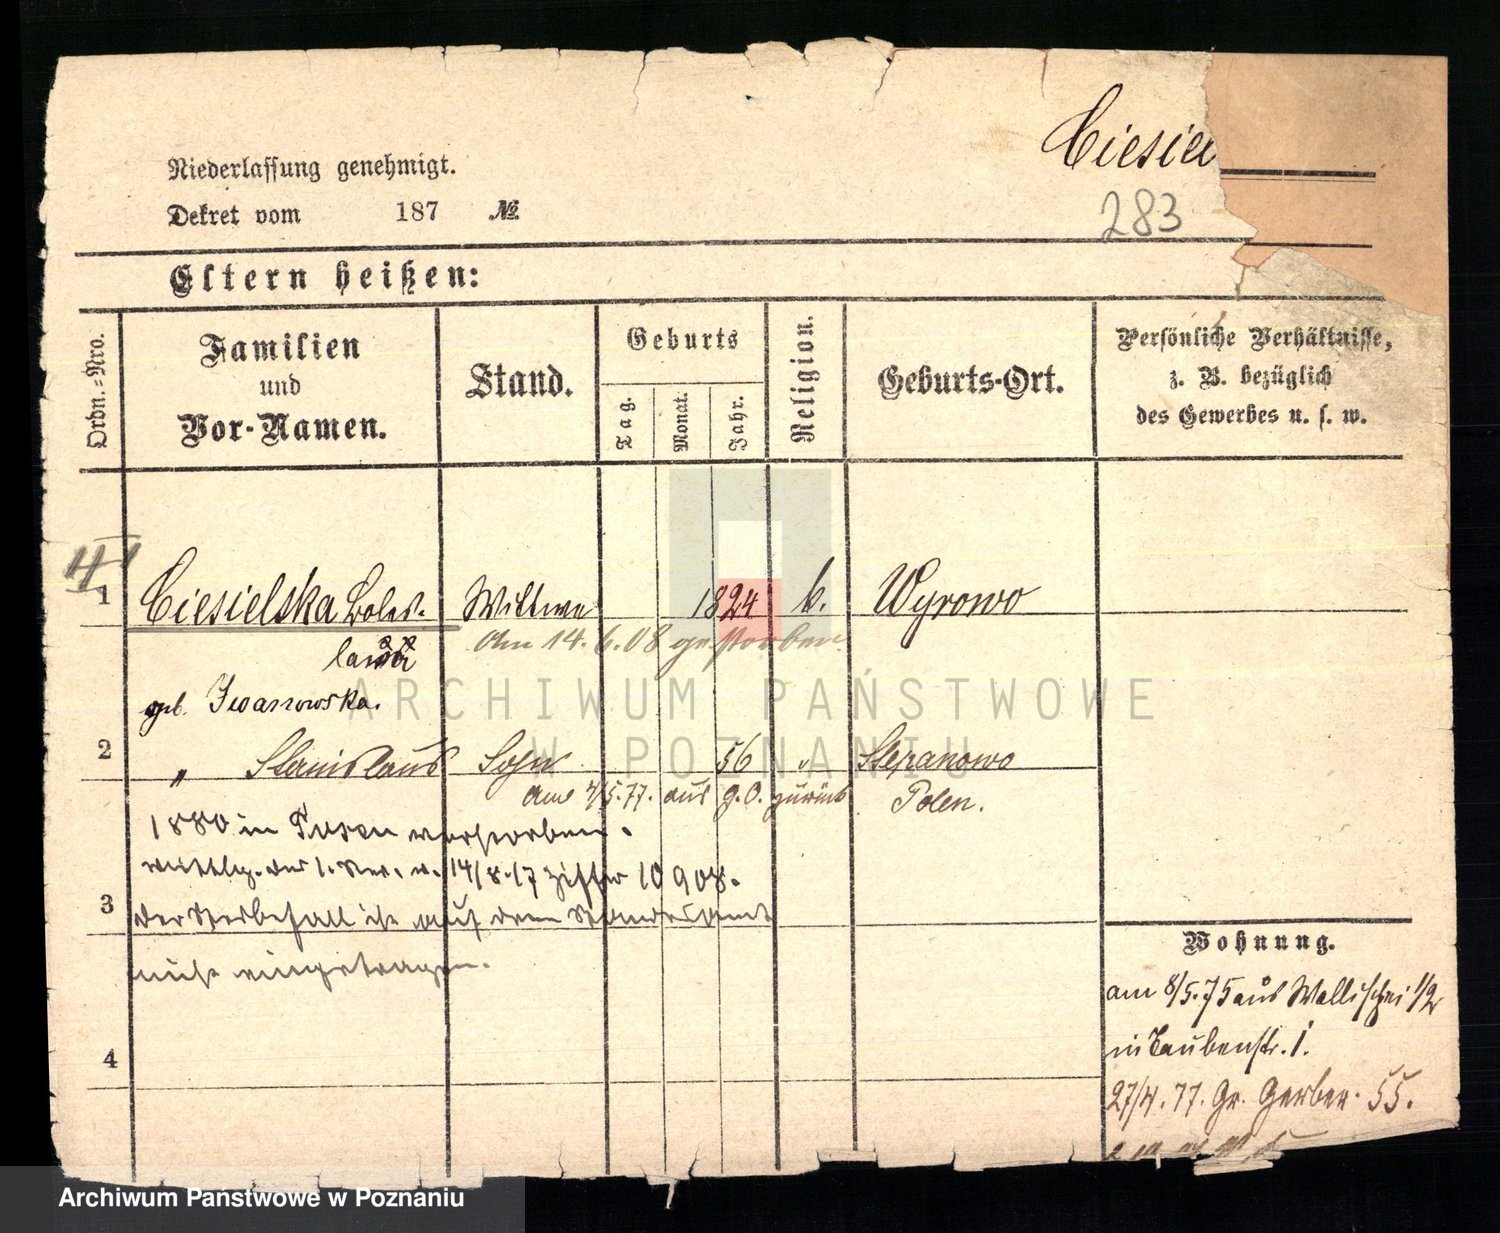 Niederlassung genehmigt.
Dekret vom 187 №
Ciesiel
283
Eltern heißen:
Ordn.-Nro.
Familien
und
Vor-Namen.
Stand.
Geburts
Tag.
Monat.
Jahr.
Religion.
Geburts-Ort.
Persönliche Verhältnisse,
z. B. bezüglich
des Gewerbes u. s. w.
1 Ciesielska Boles- Wittwe 1824 k. Wyrowo
lawa
Am 14.6.08 gestorben
geb. Iwanowska.
2 " Stanislaus Sohn 56 " Stepanowo
Polen.
am 7/5.77. aus g.O. zurück
1880 in Posen verstorben.
v. 14/8.17 Ziffer 10908.
3 der Sterbefall ist auf dem Standesamt
nicht eingetragen.
4
Wohnung.
am 8/5.75 aus Wallischei 1/2
in Taubenstr. 1.
27/4.77. Gr. Gerber. 55.
ARCHIWUM PAŃSTWOWE
W POZNANIU
Archiwum Państwowe w Poznaniu